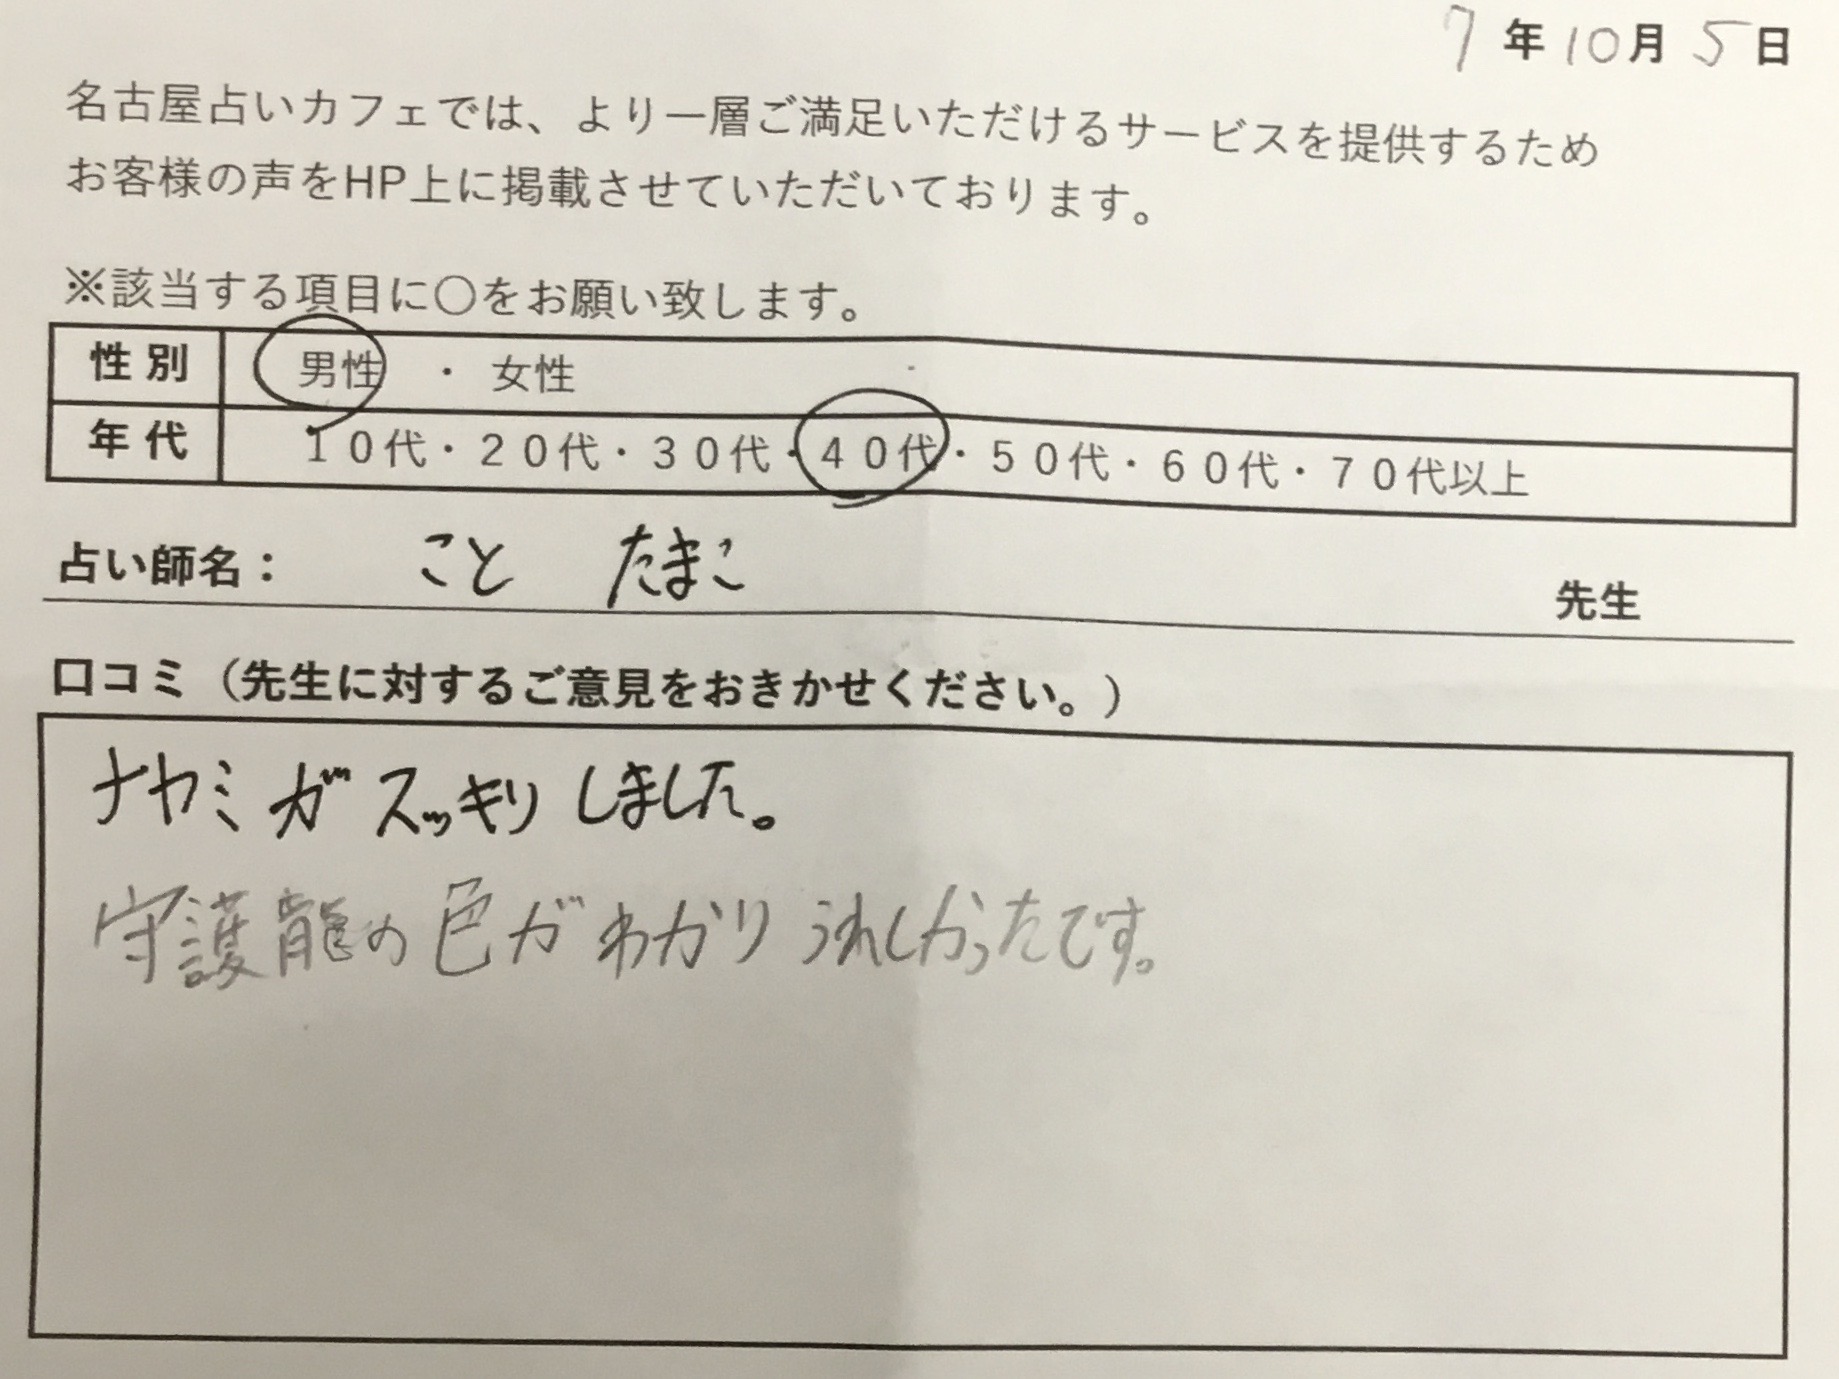 7年10月5日
名古屋占いカフェでは、より一層ご満足いただけるサービスを提供するため
お客様の声をHP上に掲載させていただいております。
※該当する項目に〇をお願い致します。
性別 男性 ・ 女性
年代 10代・20代・30代・40代・50代・60代・70代以上
占い師名： こと たまこ 先生
口コミ（先生に対するご意見をおきかせください。）
ナヤミガスッキリしました。
守護龍の色がわかりうれしかったです。